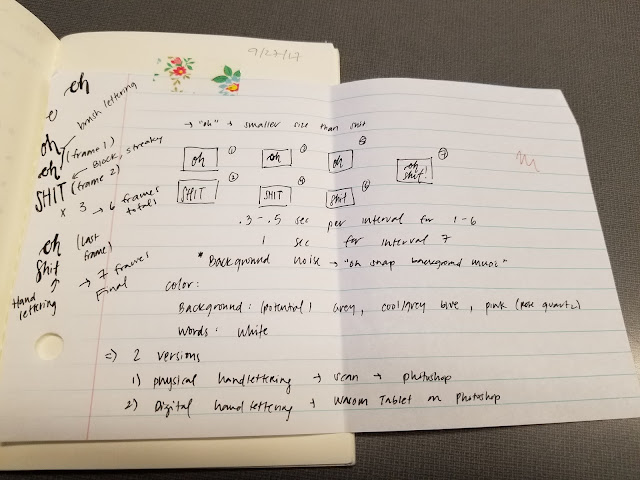 9/27/17
oh
e
brush lettering
oh
oh (frame 1)
SHIT (frame 2)
Block, streaky
x 3 → 6 frames total
oh (last frame)
Shit
Hand lettering
→ 7 frames Final
→ "oh" → smaller size than shit
oh 1 oh 3 oh
SHIT 2 SHIT 4 Shit 6
oh shit! 7
.3-.5 sec per interval for 1-6
1 sec for interval 7
* Background noise → "oh snap background music"
color:
Background: (potential) grey, cool/grey blue, pink (rose quartz)
Words: White
=) 2 versions
1) physical handlettering → scan → photoshop
2) Digital hand lettering → Wacom Tablet on Photoshop